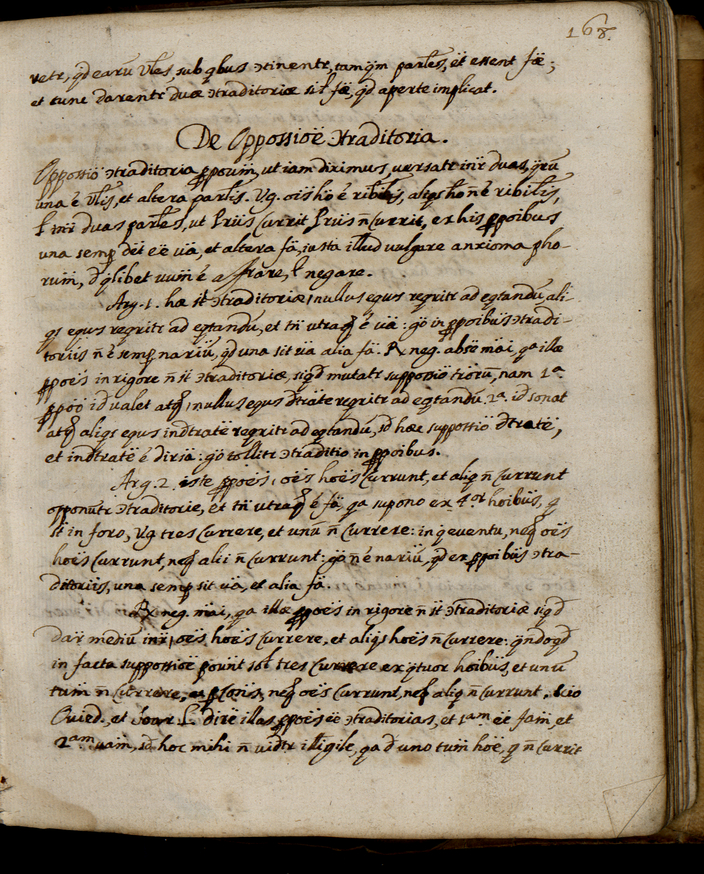 168.
retr, qd earu vles, sub qbus ɔtinentr, tamqm parles, et essent fæ;
et tunc darentr duæ ɔtraditoriæ sil fæ, qd aperte implicat.
De Oppossioe ɔtraditoria.
Oppossio ɔtraditoria ppoum, ut iam diximus, versatr intr duas, qru
una é vlis, et altera parlis. Vg. ois ho é ribilis, aliqs ho n é ribilis,
l intr duas parles, ut Priis Currit, Priis n Currit, ex his ppoibus
una semp det ee va, et altera fa, iuxta illud vulgare anxioma pho-
rum, d qlibet uum é affrare, l negare.
Arg. 1. hæ st ɔtraditoriæ, nullus equs reqritr ad eqtandu, ali-
qs equs reqritr ad eqtandu, et tn utraq é va: go in ppoibus ɔtradi-
toriis n é semp nariu, qd una sit va alia fa. Rx neg. abso mai, qa illæ
ppoes in rigore n st ɔtraditoriæ, siqd mutatr suppossio trioru, nam 1a
ppoo id valet atq, nullus equs dtrate reqritr ad eqtandu. 2a id sonat
atq aliqs equs indtrate reqritr ad eqtandu, sd hæc suppossio dtrate,
et indtrate é dirsa: go tollitr ɔtraditio in ppoibus.
Arg. 2. iste ppoes, oes hoes Currunt, et aliq n Currunt
opponutr ɔtraditorie, et tn utraq é fa, qa supono ex 4or hoibus, q
st in foro, Vg tres Currere, et unu n Currere: in q eventu, neq oes
hoes Currunt, neq alii n Currunt: go n é nariu, qd ex ppoibus ɔtra-
ditoriis, una semp sit va, et alia fa.
Rx neg. mai, qa illæ ppoes in rigore n st ɔtraditoriæ siqd
dar mediu intr, oes hoes Currere, et aliqs hoes n Currere: qndoqd
in facta suppossioe pount sol tres Currere ex qtuor hoibus, et unu
tum n Currere, neq oes Currunt, neq aliq n Currunt. scio
Ovied. et dire illas ppoes ee ɔtraditorias, et 1am ee fam, et
2am vam, sd hoc mihi n vidtr illigile, qa d uno tum hoe, q n Currit